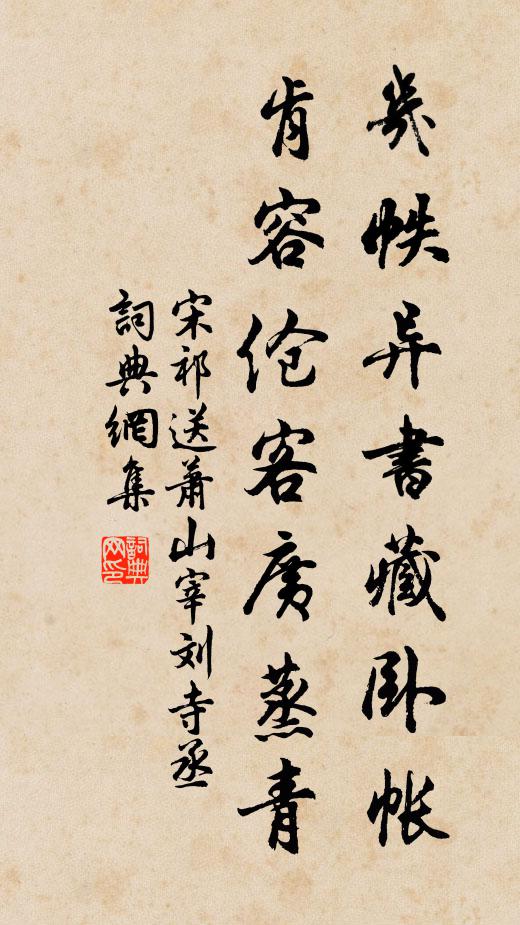 幾帙异書藏卧帳
肯容伧客廣蒸青
宋祁送蕭山宰刘寺丞
詞典網集
詞典网印